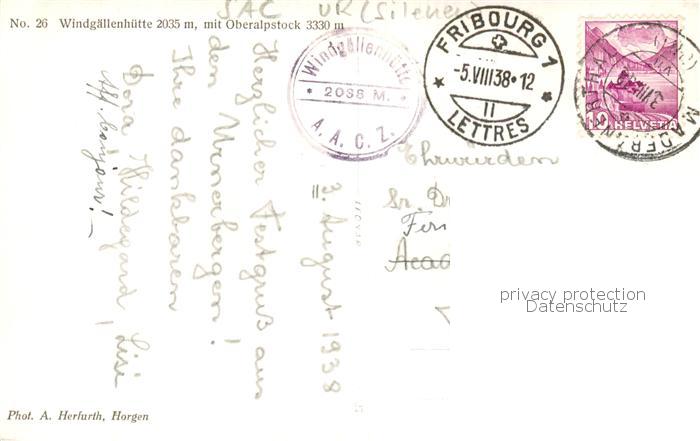 SAC UR (Silenen)
No. 26 Windgällenhütte 2035 m, mit Oberalpstock 3330 m
Windgällenhütte
* 2038 M. *
A. A. C. Z.
FRIBOURG 1
-5.VIII38·12
II
LETTRES
HELVETIA
MADERAN
3. August 1938
Herzlicher Festgruß aus
den Urnerbergen!
Ihre dankbaren
Dora, Hildegard, Lisi
Aff. bonjours! –
Ehrwürden
Sr. Dr
Fer
Acad
privacy protection
Datenschutz
Phot. A. Herfurth, Horgen